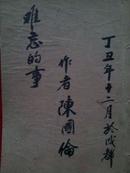 丁丑年十二月於成都
作者陳國倫
難忘的事